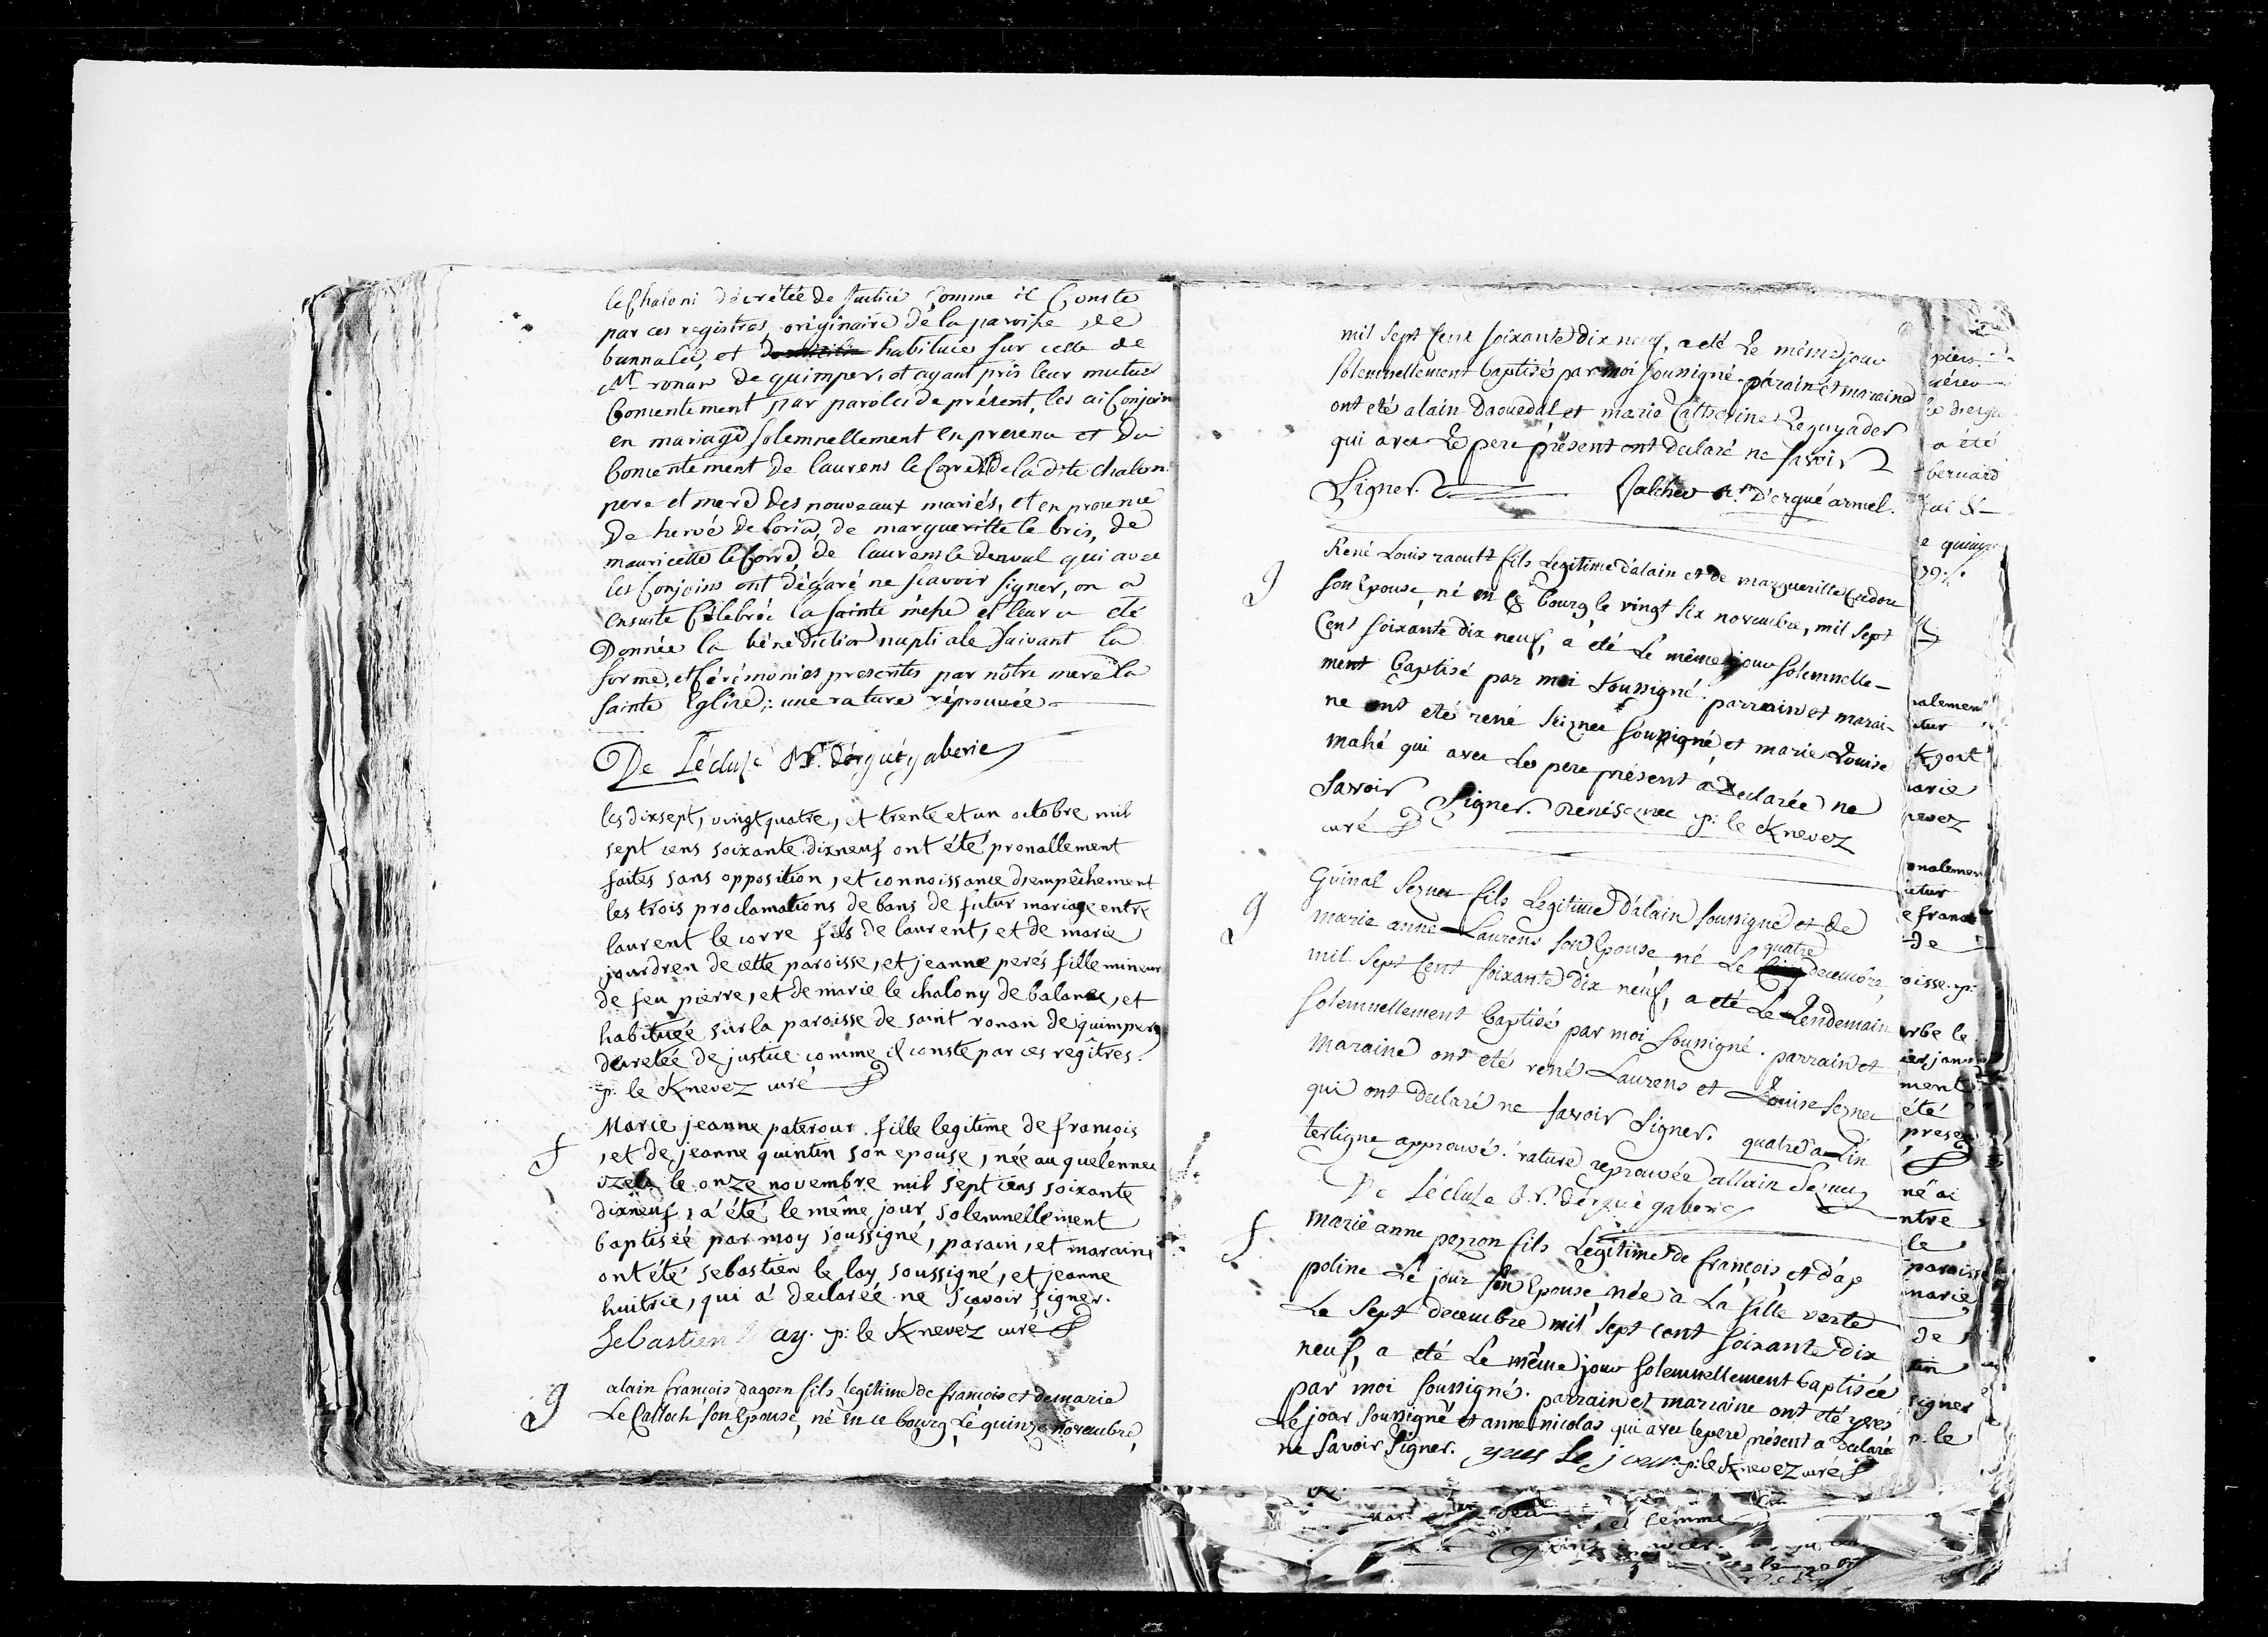 le Chaloni décrétée de Justice Comme il Conste
par ces registres, originaire de la paroisse de
bannalec, et habituée sur celle de
St ronan de quimper, et ayant pris leur mutuel
Consentement par paroles de présent, les ai Conjoin
en mariage solemnellement en presence et du
Consentement de laurens le Corre, de la dite chalon
pere et mere des nouveaux mariés, et en presence
De hervé de Loria, de margueritte le bris, de
mauricette le Corre, de laurens le denval qui avec
les Conjoins ont déclaré ne scavoir signer, on a
ensuite Célébré la sainte messe et leur a été
Donnée la bénédiction nuptiale suivant la
forme, et Cérémonies prescrites par nôtre mere la
Sainte Eglise; une rature réprouvée
De Lécluse Rr. dérgué gaberic
les dixsept, vingt quatre, et trente et un octobre mil
sept cens soixante dixneuf ont été pronallement
faites sans opposition, et connoissance d'empêchement
les trois proclamations de bans de futur mariage entre
laurent le corre fils de laurent, et de marie
jourdren de cette paroisse, et jeanne perés fille mineure
de feu pierre, et de marie le chalony de balance, et
habituée sur la paroisse de saint ronan de quimper,
decretée de justice comme il conste par ces regîtres.
p: le Knevez curé
Marie jeanne paterour fille legitime de francois
f
, et de jeanne quintin son epouse, née au quelennec
izela le onze novembre mil sept cens soixante
dixneuf, a été le même jour solemnellement
baptisée par moy soussigné, parain, et maraine
ont été sebastien le lay soussigné, et jeanne
huitric, qui a declarée ne scavoir signer.
Sebastien ay. p: le Knevez curé
g
alain francois dagorn fils legitime de francois et de marie
Le Calloch son Epouse, né en ce bourg Le quinze novembre,
mil sept Cent soixante dix neuf, a eté Le même jour
solemnellement baptisé par moi soussigné. parain et maraine
ont eté alain Daouedal et marie Catherine Leguyader
qui avec Le pere présent ont declaré ne savoir
Signer. Jalcher Rr D'ergué armel.
René Louis raoult fils Legitime d'alain et de marguerite Credou
g
son Epouse, né en ce bourg le vingt six novembre, mil sept
Cent soixante dix neuf, a eté Le même jour solemnelle-
ment Baptisé par moi soussigné. parrain et marai-
ne ont eté rené Seznec soussigné et marie Louise
mahé qui avec Le pere présent a declarée ne
Savoir Signer. René Seznec p: le Knevez
curé
Guinal Seznec fils Legitime d'alain soussigné et de
g
marie anne Laurens son Epouse né Le quatre decembre,
mil sept Cent soixante dix neuf, a eté Le Lendemain
solemnellement Baptisé par moi soussigné. parrain et
maraine ont eté rené Laurens et Louise Seznec
qui ont declaré ne savoir signer. quatre a Lin
terligne approuvé. rature reprouvée allain Seznec
De Lécluse R.r. dérgué gaberic
f
marie anne pezron fils Legitime de francois, et d'ap
poline Le jour son Epouse, née à La salle verte
Le Sept decembre mil sept cent soixante dix
neuf, a eté Le même jour solemnellement baptisée
par moi soussigné. parrain et marraine ont eté yves
Le jour soussigné et anne nicolas qui avec le pere présent a declaré
ne savoir signer. yves Le jour p: le Knevez curé
a été
bernard
e quimper
79
nalement
utur
Kgoat
marie
nevez
onalement
utur
e franc
de
oisse. p:
urbe le
ier janvi
ment
été
presen
né ai
ntre
le
paroisse
marie
de
tin
signer
p. le